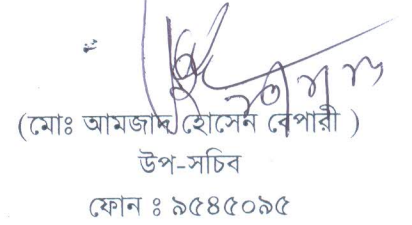 (মোঃ আমজাদ হোসেন বেপারী )
উপ-সচিব
ফোন ঃ ৯৫৪৫০৯৫